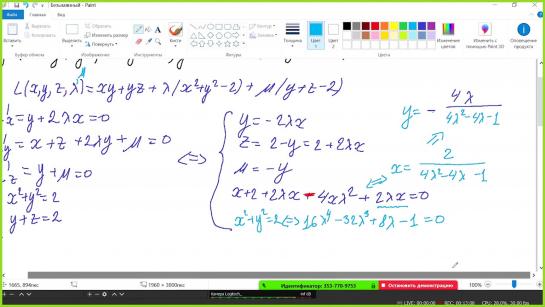 Безымянный - Paint
Файл Главная Вид
Вставить
Выделить
Изменить размер
Повернуть
Контур
Заливка
Толщина
Цвет 1
Цвет 2
Изменение цветов
Изменить с помощью Paint 3D
Оповещение о продукте
Буфер обмена Изображение Инструменты Фигуры Цвета
L(x,y,z,λ)=xy+yz+λ(x²+y²-2)+μ(y+z-2)
x=y+2λx=0
y=x+z+2λy+μ=0
z=y+μ=0
x²+y²=2
y+z=2
<=>
y=-2λx
z=2-y=2+2λx
μ=-y
x+2+2λx-4xλ²+2λx=0
x²+y²=2<=>16λ⁴-32λ³+8λ-1=0
y=-4λ/(4λ²-4λ-1)
x=2/(4λ²-4λ-1)
1665, 894пкс
1960 × 3000пкс
100%
Идентификатор: 353-770-9753
Остановить демонстрацию